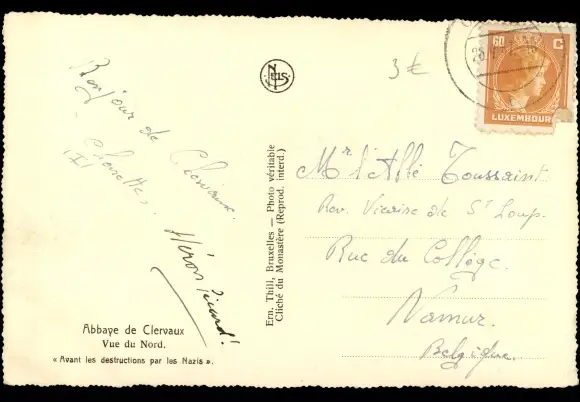 Bonjour de
Clervaux.
Abbaye de Clervaux
Vue du Nord.
« Avant les destructions par les Nazis ».
NELS
Ern. Thill, Bruxelles — Photo véritable
Cliché du Monastère (Reprod. interd.)
3 €
60 C
LUXEMBOURG
Mr l'Abbé Toussaint
Rev. Vicaire de St Loup.
Rue du Collège.
Namur.
Belgique.